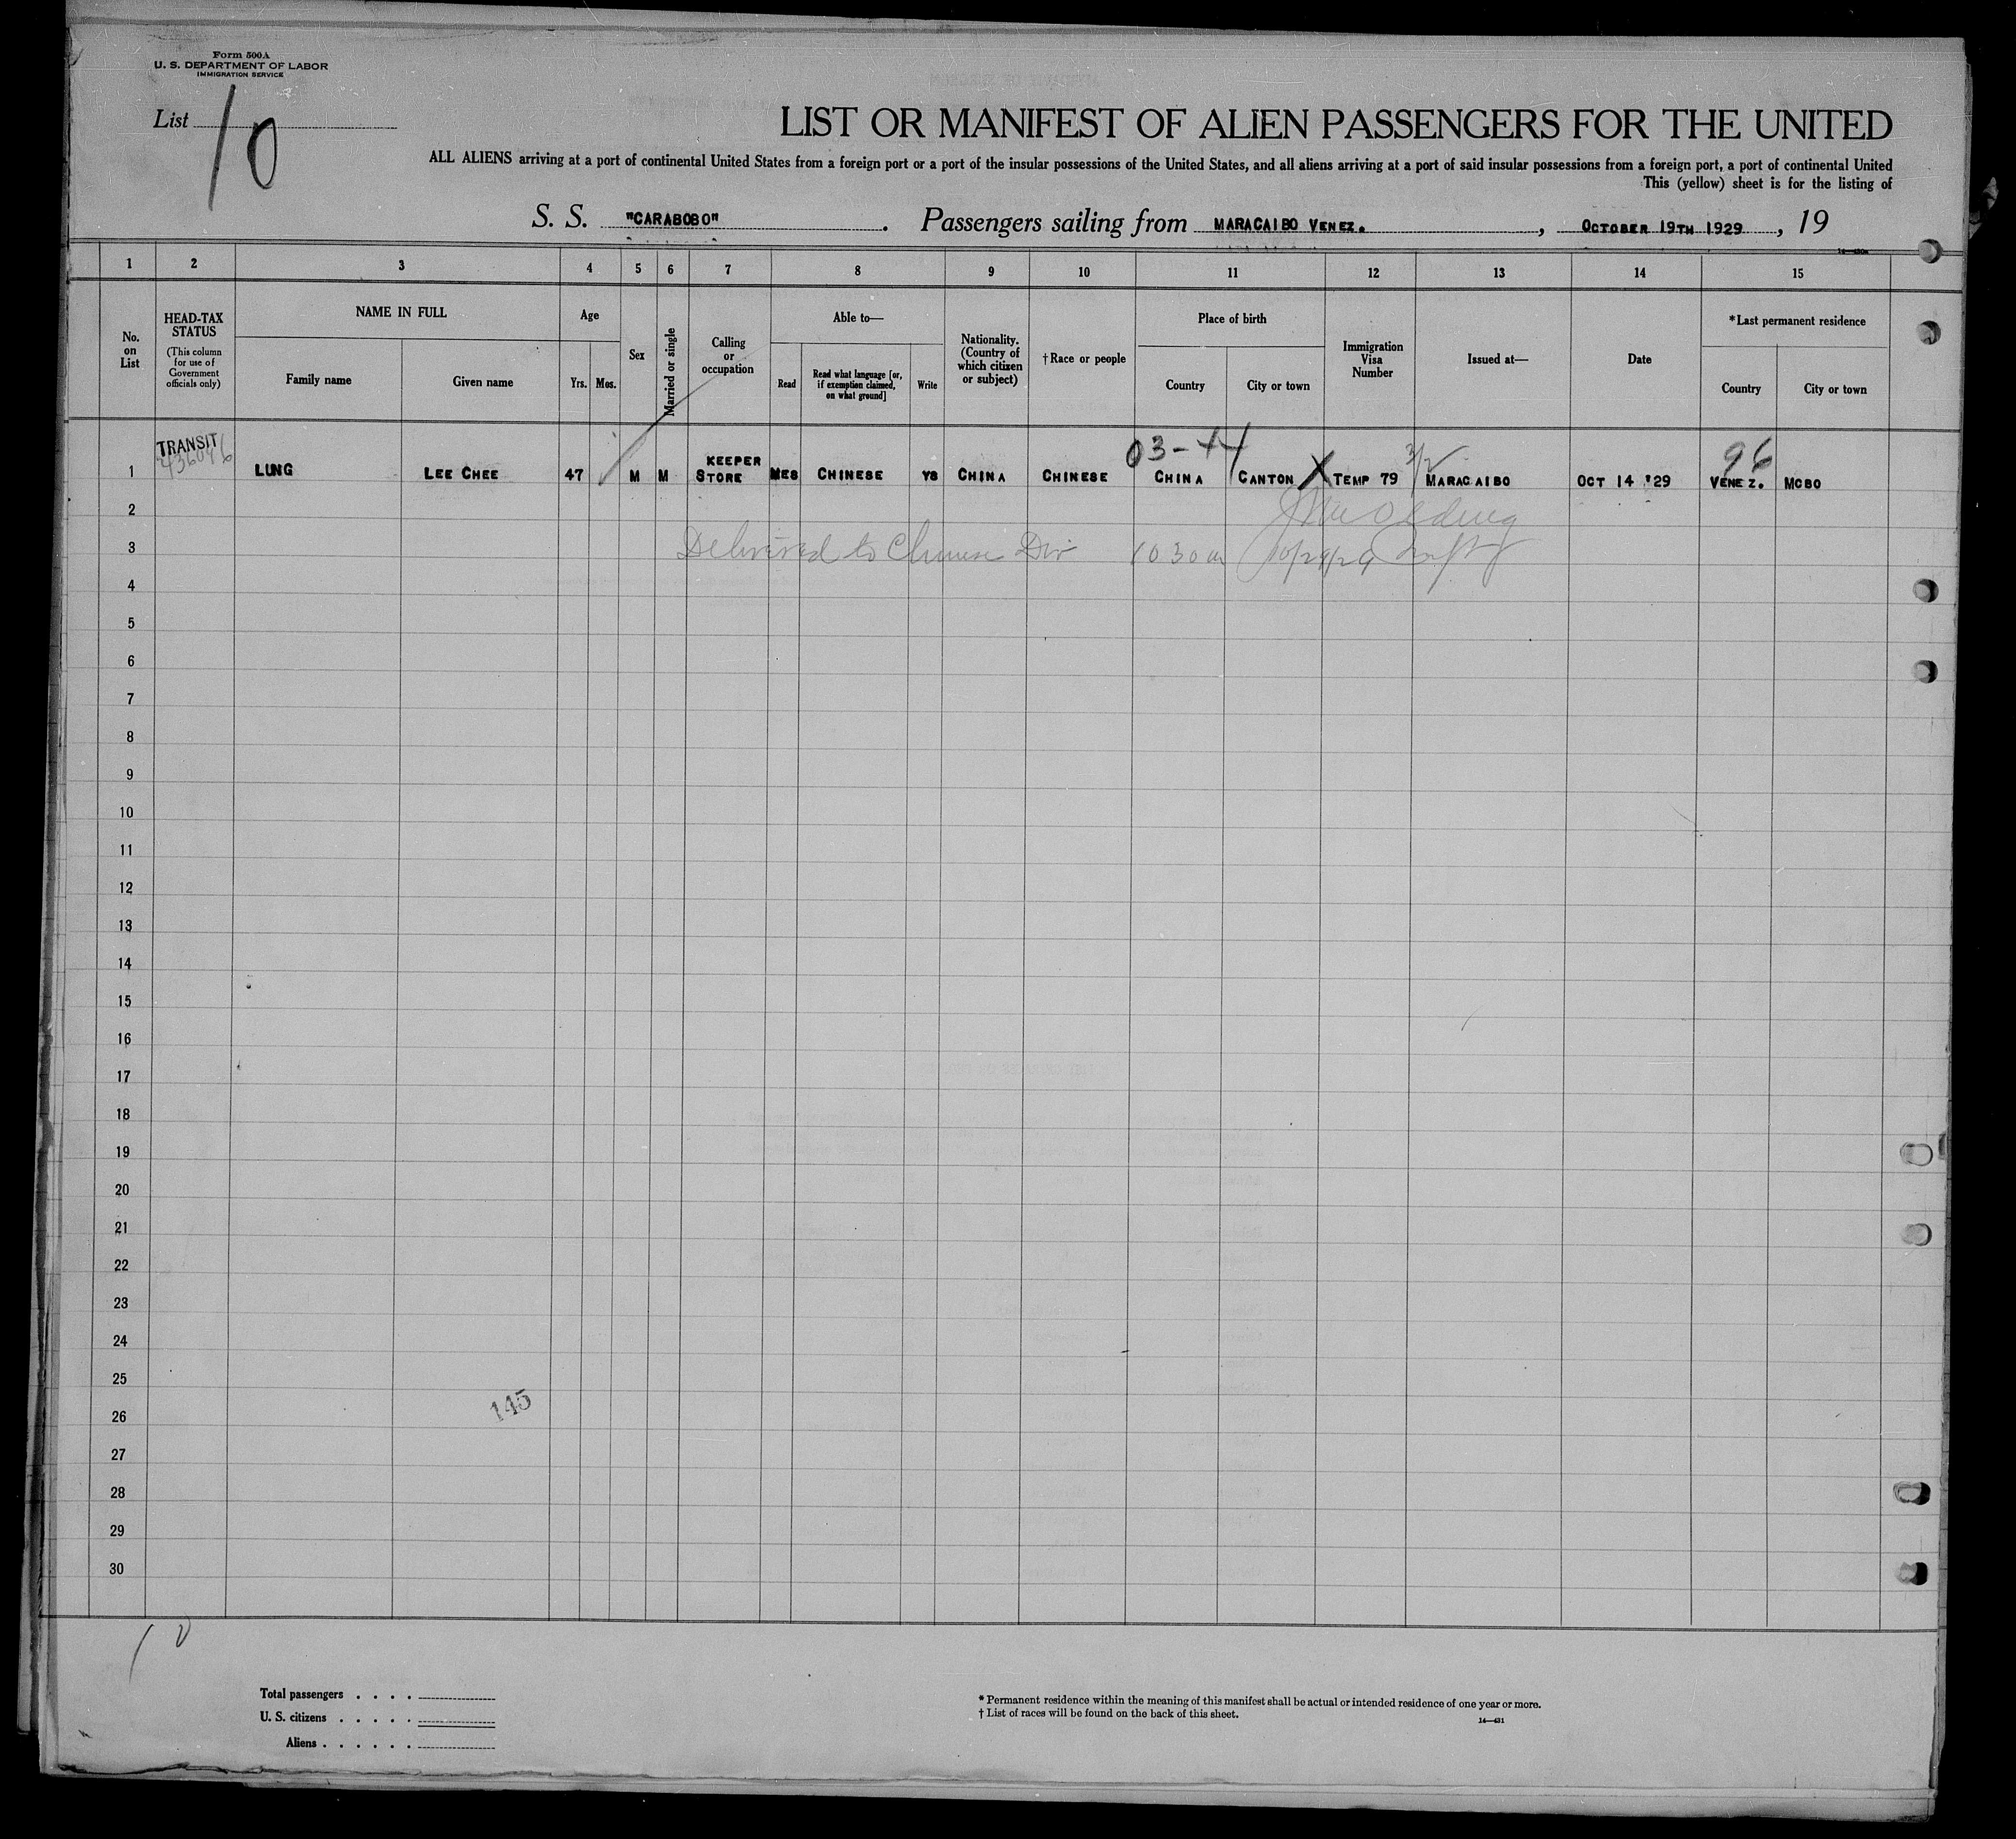 Form 500A
U. S. DEPARTMENT OF LABOR
IMMIGRATION SERVICE
List 10
LIST OR MANIFEST OF ALIEN PASSENGERS FOR THE UNITED
ALL ALIENS arriving at a port of continental United States from a foreign port or a port of the insular possessions of the United States, and all aliens arriving at a port of said insular possessions from a foreign port, a port of continental United
This (yellow) sheet is for the listing of
S. S. "CARABOBO". Passengers sailing from MARACAIBO VENEZ., OCTOBER 19TH 1929, 19
1 2 3 4 5 6 7 8 9 10 11 12 13 14 15
No. on List
HEAD-TAX STATUS
(This column for use of Government officials only)
NAME IN FULL
Family name
Given name
Age
Yrs.
Mos.
Sex
Married or single
Calling or occupation
Able to—
Read
Read what language [or, if exemption claimed, on what ground]
Write
Nationality. (Country of which citizen or subject)
†Race or people
Place of birth
Country
City or town
Immigration Visa Number
Issued at—
Date
*Last permanent residence
Country
City or town
TRANSIT
03-
96
KEEPER
1 LUNG LEE CHEE 47 M M STORE CHINESE YS CHINA CHINESE CHINA CANTON X TEMP 79 MARACAIBO OCT 14 '29 VENEZ. MCBO
2
3 Delivered to Chinese Div 10 30 10/29/29
4
5
6
7
8
9
10
11
12
13
14
15
16
17
18
19
20
21
22
23
24
25
145
26
27
28
29
30
10
Total passengers . . . .
U. S. citizens . . . . .
Aliens . . . . . .
* Permanent residence within the meaning of this manifest shall be actual or intended residence of one year or more.
† List of races will be found on the back of this sheet.
14—431